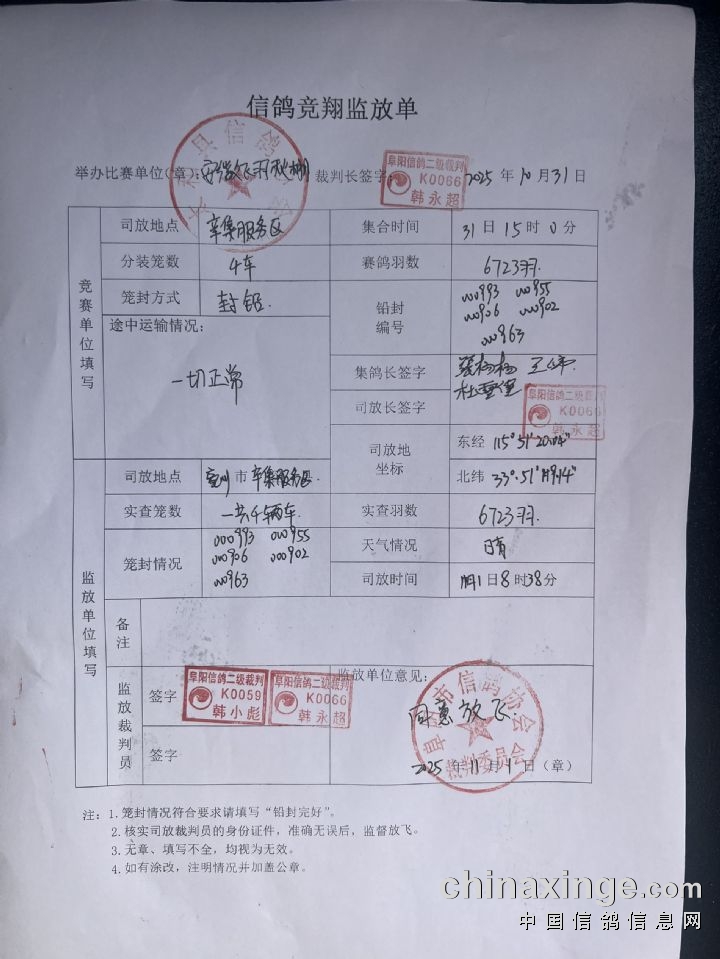 信鸽竞翔监放单
举办比赛单位(章): 裁判长签字: 2025 年 10 月 31 日
阜阳信鸽二级裁判
K0066
韩永超
竞赛单位填写
司放地点 辛集服务区 集合时间 31 日 15 时 0 分
分装笼数 4车 赛鸽羽数 6723羽.
笼封方式 封铅. 铅封编号 000993 000955
000906 000902
000963
途中运输情况:
一切正常
集鸽长签字
司放长签字
阜阳信鸽二级裁判
K0066
韩永超
司放地坐标 东经 115°51′
北纬 33°.51′
监放单位填写
司放地点 亳州 市 辛集服务区
实查笼数 一共4辆车. 实查羽数 6723羽.
笼封情况 000993 000955
000906 000902
000963
天气情况 晴
司放时间 11月1日8时38分
备注
监放裁判员
签字
阜阳信鸽二级裁判
K0059
韩小彪
阜阳信鸽二级裁判
K0066
韩永超
签字
监放单位意见:
同意放飞
阜阳市信鸽协会
裁判委员会
2025 年 11 月 1 日(章)
注: 1.笼封情况符合要求请填写“铅封完好”。
2.核实司放裁判员的身份证件，准确无误后，监督放飞。
3.无章、填写不全，均视为无效。
4.如有涂改，注明情况并加盖公章。
chinaxinge.com
中国信鸽信息网